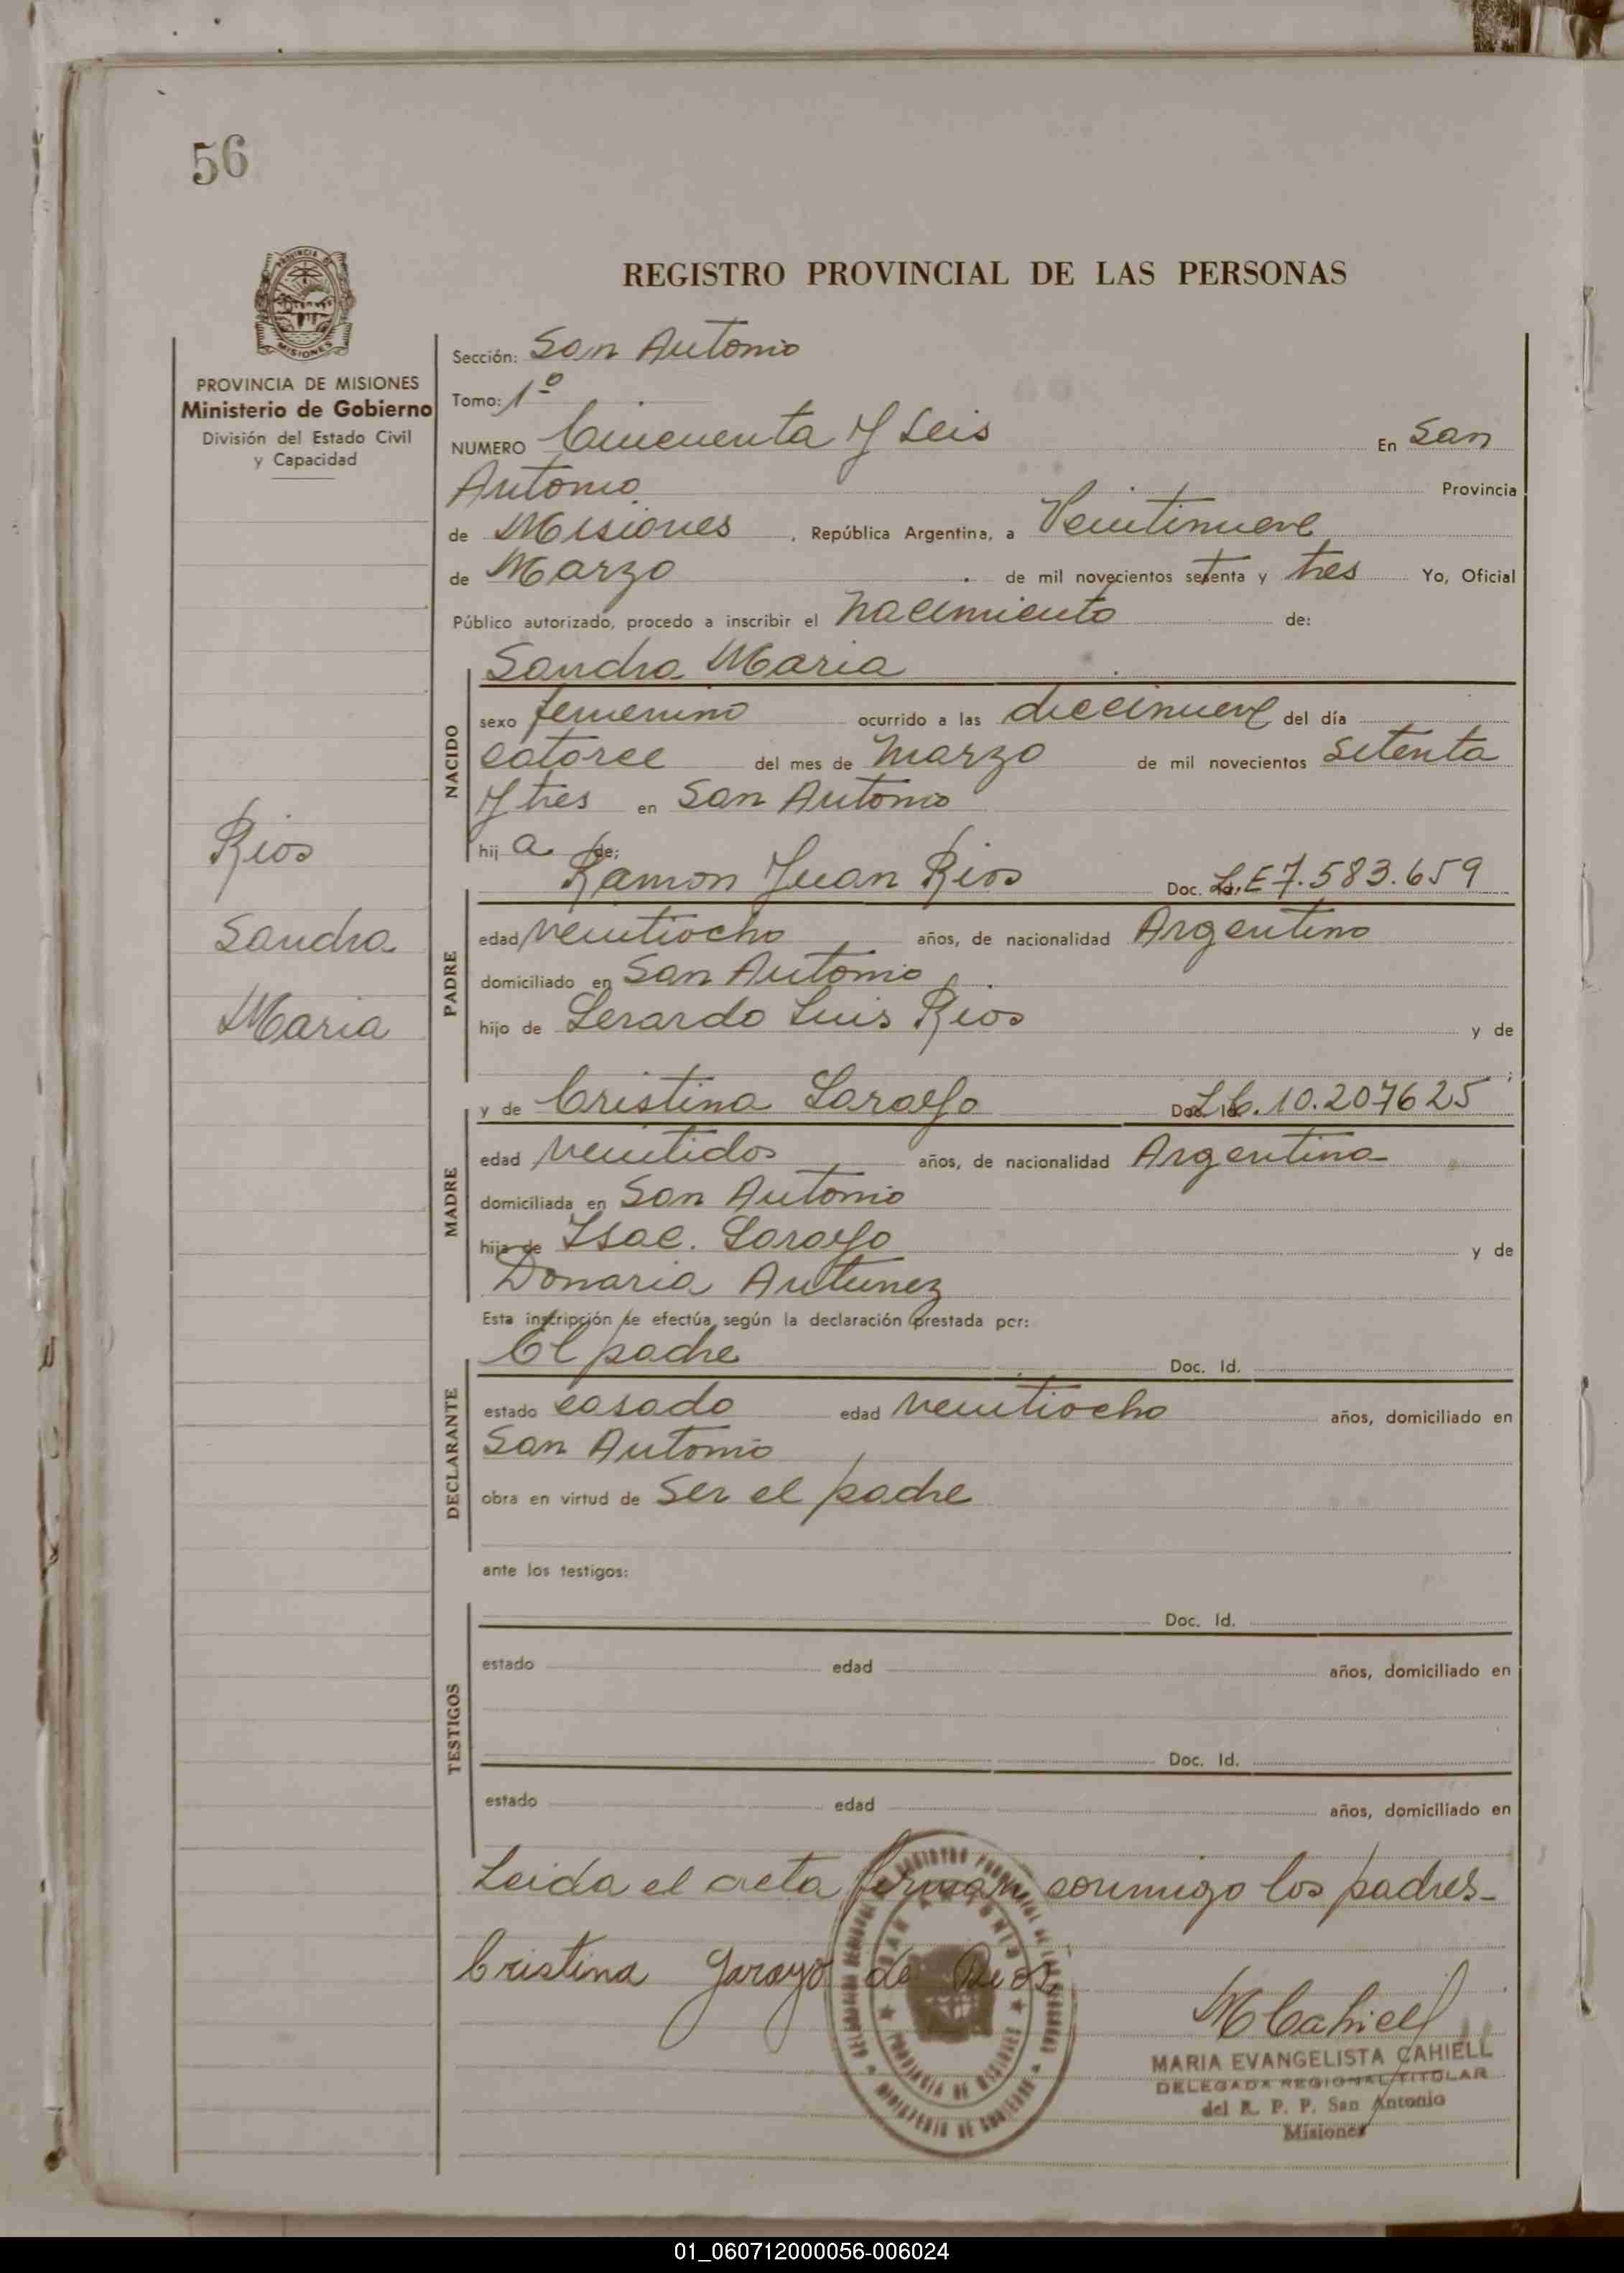 56
PROVINCIA DE
MISIONES
PROVINCIA DE MISIONES
Ministerio de Gobierno
División del Estado Civil
y Capacidad
Rios
Sandra
Maria
REGISTRO PROVINCIAL DE LAS PERSONAS
Sección: San Antonio
Tomo: 1º
NUMERO Cincuenta y Seis En San
Antonio Provincia
de Misiones, República Argentina, a Veintinueve
de Marzo de mil novecientos setenta y tres Yo, Oficial
Público autorizado, procedo a inscribir el nacimiento de:
Sandra Maria
NACIDO
sexo femenino ocurrido a las diecinueve del día
catorce del mes de Marzo de mil novecientos Setenta
y tres en San Antonio
hij a de;
Ramon Juan Rios Doc. Id. L.E 7.583.659
PADRE
edad veintiocho años, de nacionalidad Argentino
domiciliado en San Antonio
hijo de Gerardo Luis Rios y de
y de Cristina Garayo Doc. Id. L.C. 10.207625
MADRE
edad veintidos años, de nacionalidad Argentina
domiciliada en San Antonio
hija de Isac. Garayo y de
Donaria Antunez
Esta inscripción se efectúa según la declaración prestada por:
El padre Doc. Id.
DECLARANTE
estado casado edad veintiocho años, domiciliado en
San Antonio
obra en virtud de Ser el padre
ante los testigos:
Doc. Id.
TESTIGOS
estado edad años, domiciliado en
Doc. Id.
estado edad años, domiciliado en
Leida el acta firman conmigo los padres-
Cristina Garayo de Rios
MCahiell
MARIA EVANGELISTA CAHIELL
DELEGADA REGIONAL TITULAR
del R. P. P. San Antonio
Misiones
SAN ANTONIO
PROVINCIA DE MISIONES
MINISTERIO DE GOBIERNO
01_060712000056-006024